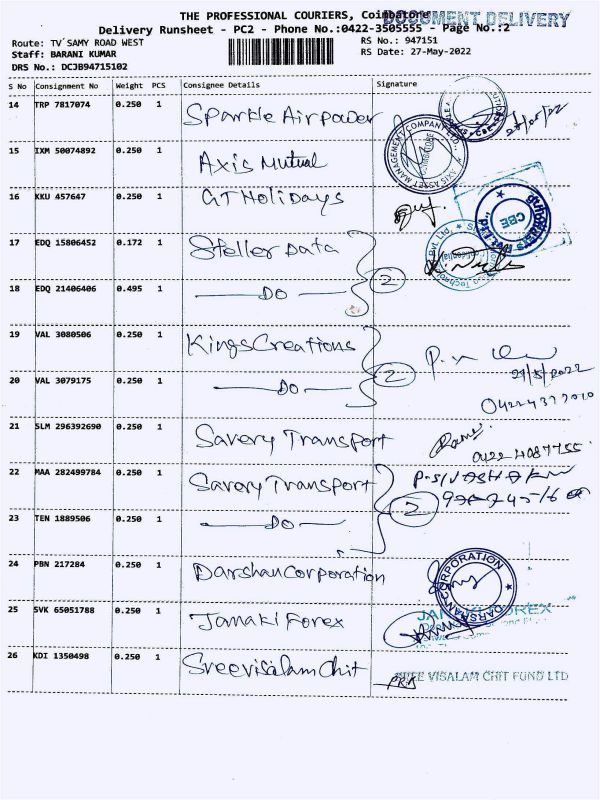 THE PROFESSIONAL COURIERS, Coimbatore
DOCUMENT DELIVERY
Delivery Runsheet - PC2 - Phone No.:0422-3505555 - Page No.:2
Route: TV`SAMY ROAD WEST RS No.: 947151
Staff: BARANI KUMAR RS Date: 27-May-2022
DRS No.: DCJB94715102
S No Consignment No Weight PCS Consignee Details Signature
14 TRP 7817074 0.250 1 Sparkle Airpower
15 IXM 50074892 0.250 1 Axis Mutual
AXIS ASSET MANAGEMENT COMPANY LTD.
COIMBATORE
16 KKU 457647 0.250 1 GT Holidays
CBE
17 EDQ 15806452 0.172 1 Steller Data
18 EDQ 21406406 0.495 1 DO 2
19 VAL 3080506 0.250 1 Kings Creations
20 VAL 3079175 0.250 1 DO 2
21 SLM 296392690 0.250 1 Savery Transport
0422 4087755
22 MAA 282499784 0.250 1 Savery Transport
23 TEN 1889506 0.250 1 DO 2
24 PBN 217284 0.250 1 Darshan Corporation
DARSHAN CORPORATION
25 SVK 65051788 0.250 1 Janaki Forex
JANAKI FOREX
26 KDI 1350498 0.250 1 Sreevisalam Chit
SREE VISALAM CHIT FUND LTD